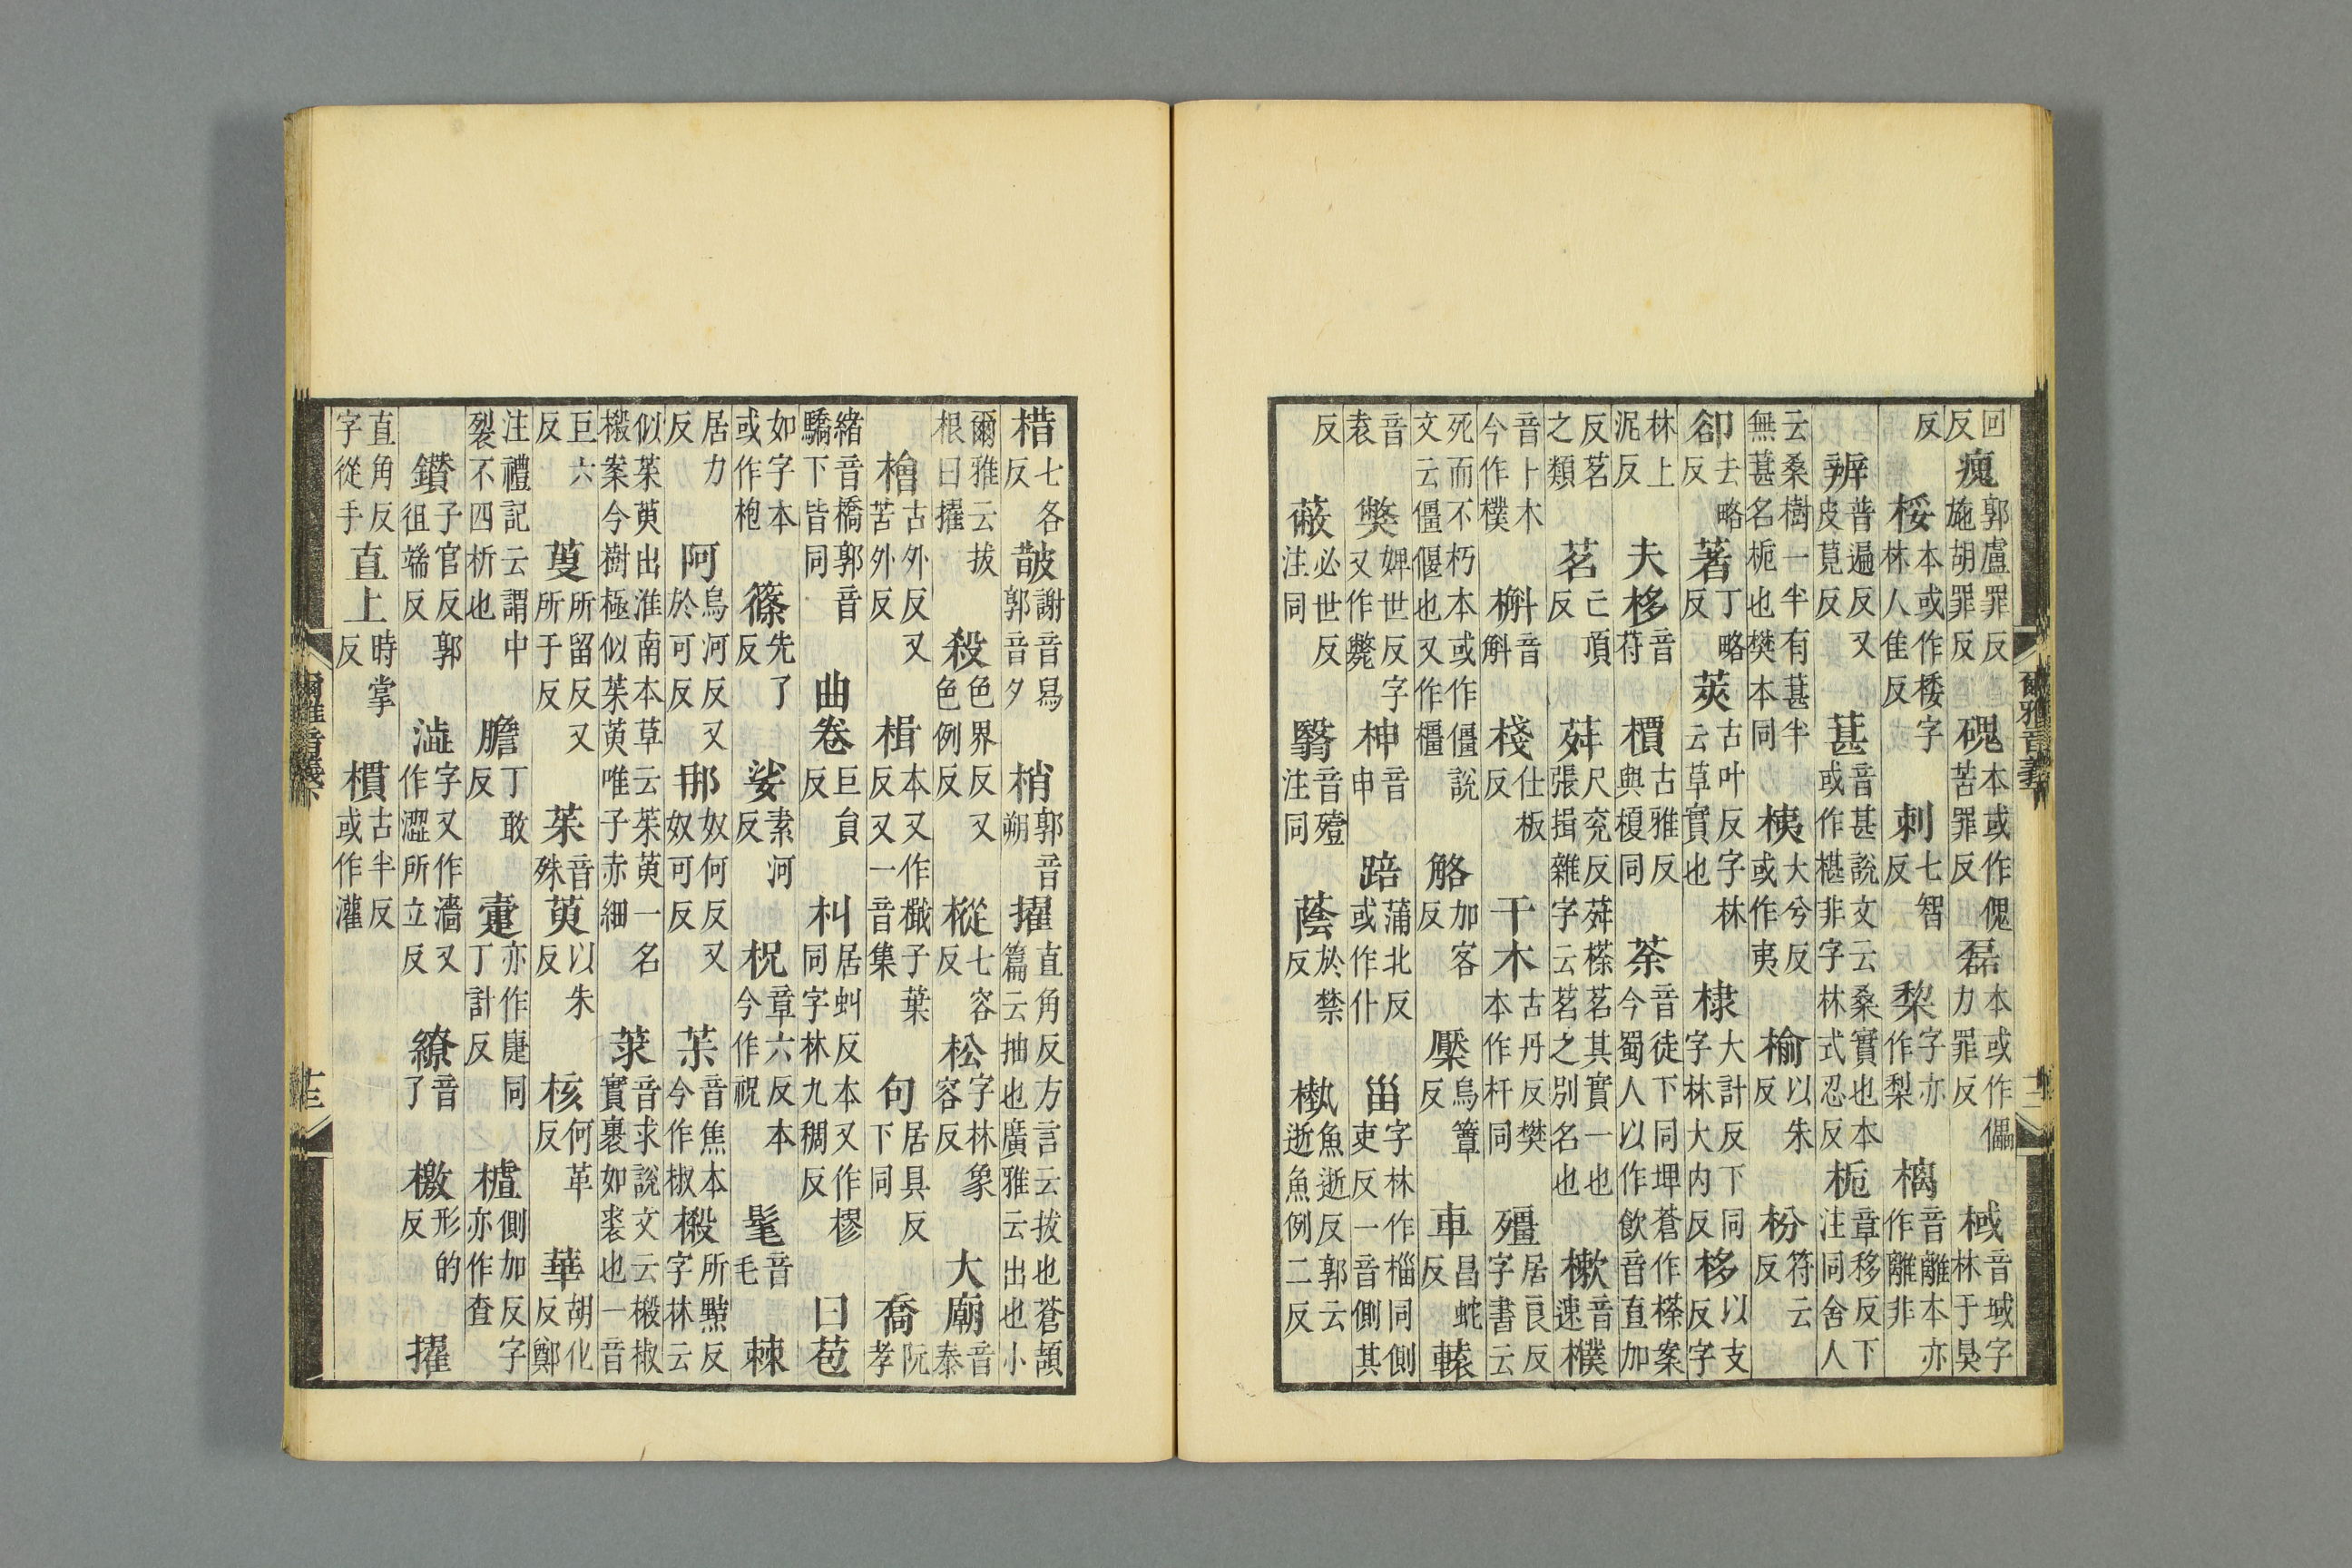 回反瘣郭盧罪反施胡罪反磈本或作傀苦罪反磊本或作儡力罪反棫音域字林于㚖
反桵本或作㮃字林人隹反刺七智反棃字亦作梨樆音離本亦作離非
辨普遍反又皮莧反葚音甚說文云桑實也本或作椹非字林式忍反梔章移反下注同舍人
云桑樹一半有葚半無葚名梔也樊本同桋大兮反或作夷榆以朱反枌符云反
卻去略反著丁略反莢古叶反字林云草實也棣大計反下同字林大内反栘以支反字
林上泥反夫栘音苻檟古雅反與榎同荼音徒下同埤蒼作㯆案今蜀人以作飲音直加
反茗之類茗亡頂反荈尺兖反荈㯆茗其實一也張揖雜字云茗之別名也樕音速樸
音卜木今作樸槲音斛棧仕板反干木古丹反樊本作杆同殭居良反字書云
死而不朽本或作僵說文云僵偃也又作橿觡加客反檿烏簟反車昌蛇反轅
音袁獘婢世反字又作斃柛音申踣蒲北反或作仆甾字林作椔同側吏反一音側其
反蔽必世反注同翳音殪注同蔭於禁反槸魚逝反郭云逝魚例二反
爾雅音義
棤七各反皵謝音舄郭音夕梢郭音朔擢直角反方言云拔也蒼頡篇云抽也廣雅云出也小
爾雅云拔根曰擢殺色界反又色例反樅七容反松字林象容反大廟音泰
檜古外反又苦外反楫本又作檝子葉反又一音集句居具反下同喬阮孝
緒音橋郭音驕下皆同曲卷巨員反朻居虯反本又作樛同字林九稠反曰苞
如字本或作枹篠先了反娑素河反柷章六反本今作祝髦音毛棘
居力反阿烏河反又於可反那奴何反又奴可反茮音焦本今作椒樧所黠反字林云
似茱萸出淮南本草云茱萸一名樧案今樹極似茱萸唯子赤細莍音求說文云樧椒實裹如裘也一音
巨六反所留反又所于反茱音殊萸以朱反核何革反華胡化反鄭
注禮記云謂中裂不四析也膽丁敢反疐亦作疌同丁計反樝側加反字亦作查
鑽子官反郭徂端反澁字又作濇又作澀所立反繚音了檄形的反擢
直角反字從手直上時掌反樌古半反或作灌
爾雅音義